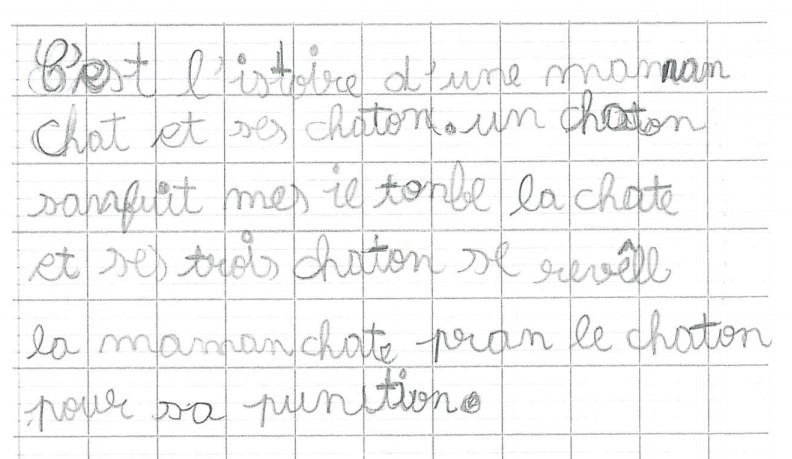 C'est l'istoire d'une maman
chat et ses chaton. un chaton
sanfuit mes il tonbe la chate
et ses trois chaton se revêll
la maman chate pran le chaton
pour sa punition.